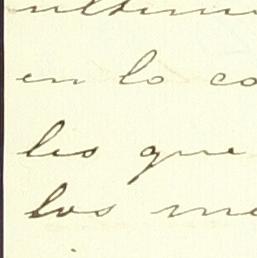 en lo co
les que
los me